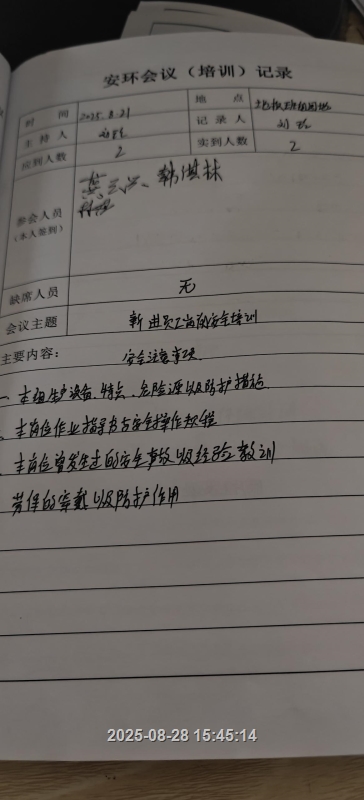 安环会议（培训）记录
时 间 2025.8.21 地 点
主 持 人 记 录 人
应到人数 2 实到人数 2
参会人员
（本人签到）
缺席人员 无
会议主题 新进员工岗前安全培训
主要内容： 安全注意事项
一、本组生产设备、特点、危险源以及防护措施
本岗位作业指导书与安全操作规程
本岗位曾发生过的安全事故以及经验教训
劳保的穿戴以及防护作用
2025-08-28 15:45:14